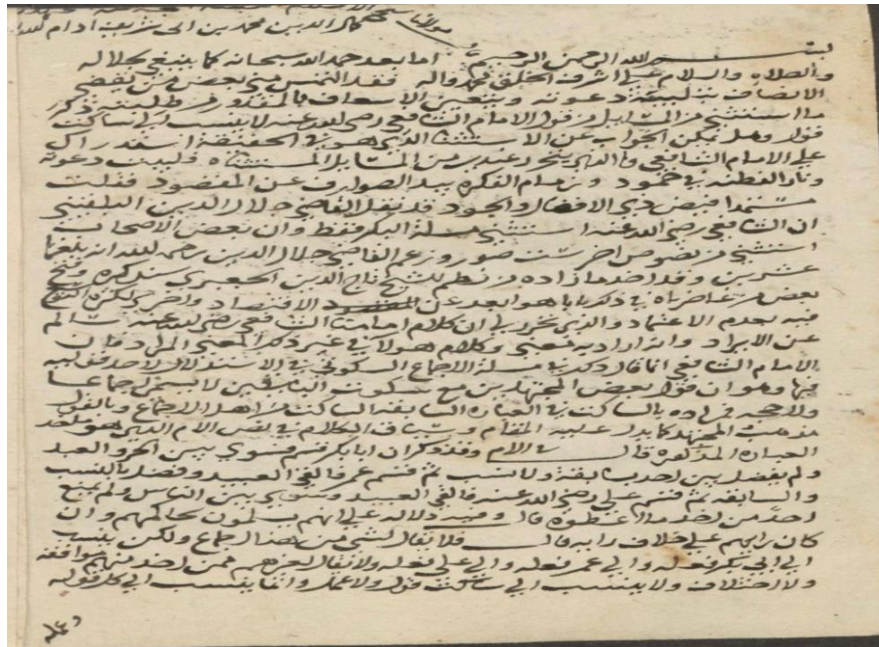 مولانا شيخ كمال الدين محمد بن ابى شريف ادام الله
بسم الله الرحمن الرحيم اما بعد حمد الله سبحانه كما ينبغي لجلاله
والصلاه والسلام على اشرف الخلق محمد واله فقد التمس مني بعض من يقضي
الانصاف بتلبية دعوته ويتعين الاسعاف بالمقدور من طلبته ذكر
ما استثني من المسايل من قول الامام الشافعي رضي الله عنه لا ينسب الى ساكت
قول وهل يمكن الجواب عن الاستثنا الذي هو في الحقيقة استدراك
على الامام الشافعي وما الذي يتجه عندي من المسايل المستثناه فلبيت دعوته
ونار الفطنه في خمود وزمام الفكره بيد الصوارف عن المقصود فقلت
مستمدا فيض ذي الافضال والجود قد نقل القاضي جلال الدين البلقيني
ان الشافعي رضي الله عنه استثنى مسلة البكر فقط وان بعض الاصحاب
استثنى من نصوص اخر ست صور وزعم القاضي جلال الدين رحمه الله انه بلغها
عشرين وقد اخذ ما زاده من نظم للشيخ تاج الدين الجعبري
بعض من عاصرناه في ذكر ما هو ابعد عن الاقتصاد واحرى لكثرة
فيه بعدم الاعتماد والذي تحرر لي ان كلام امامنا الشافعي رضي الله عنه سالم
عن الايراد وانه اراد به معنى وكلام هولا في غير ذلك المعنى المراد فان
الامام الشافعي انما قال ذلك في مسلة الاجماع السكوتي في الاستدلال لاحد قوليه
فيها وهو ان قول بعض المجتهدين مع سكوت الباقين لا يسمى اجماعا
ولا حجه فمراده بالساكت في العباره السابقه الساكت من اهل الاجماع وبالقول
مذهب المجتهد كما يدل عليه المقام وسياق الكلام في نفس الام الذي هو
العباره المذكوره قال في الام وقد ذكر ان ابا بكر قسم فسوى بين الحر والعبد
ولم يفضل بين احد بسابقة ولا نسب ثم قسم عمر فالغى العبيد وفضل بالنسب
والسابقه ثم قسم علي رضي الله عنه فالغى العبيد وسوى بين الناس ولم يمنع
احد من اخذ ما اعطوه قال وفيه دلاله على انهم يسلمون لحاكمهم وان
كان رايهم على خلاف رايه قال فلا يقال لشي من هذا اجماع ولكن ينسب
الى ابي بكر فعله والى عمر فعله والى علي فعله ولا يقال لغيرهم ممن اخذ منهم موافقه
ولا اختلاف ولا ينسب الى ساكت قول ولا عمل وانما ينسب الى كل قوله